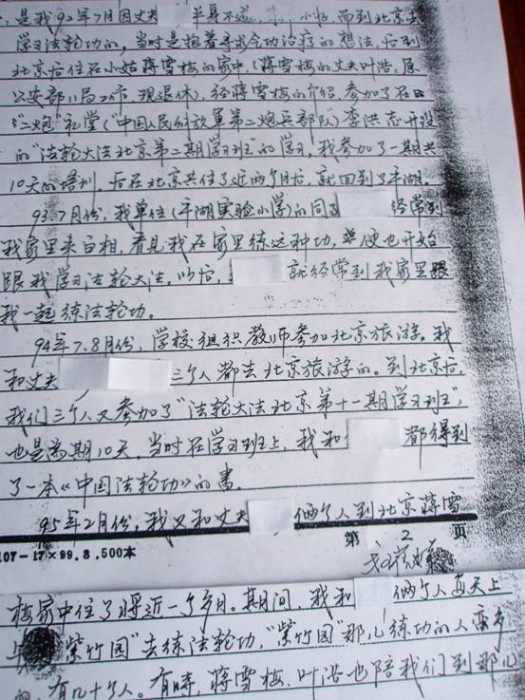 是我92年7月因丈夫 半身不遂 而到北京去
学习法轮功的，当时是抱着寻求气功治疗的想法，后到
北京后住在小姑蒋雪梅的家中（蒋雪梅的丈夫叶浩，原
公安部11局工作，现退休），经蒋雪梅的介绍，参加了在
“二炮”礼堂（中国人民解放軍第二炮兵部队）李洪志开设
的“法轮大法北京第二期学习班”的学习，我参加了一期共
10天的培训，后在北京共住了近两个月后，就回到了平湖。
93.7月份，我单位（平湖实验小学）的同 经常到
我家里来白相，看见我在家里练这种功， 便也开始
跟我学习法轮大法，以后， 就经常到我家里跟
我一起练法轮功。
94年7.8月份，学校组织教师参加北京旅游，我
和丈夫 三个人都去北京旅游的。到北京后，
我们三个人又参加了“法轮大法北京第十一期学习班”，
也是为期10天，当时在学习班上，我和 都得到
了一本《中国法轮功》的書。
95年2月份，我又和丈夫 俩个人到北京蒋雪
第 2 页
107-17×99.8.500本
梅家中住了将近一个多月。期间，我和 俩个人每天上
“紫竹园”去练法轮功，“紫竹园”那儿练功的人蛮多
的，有几十个人。有时，蒋雪梅、叶浩也陪我们到那儿